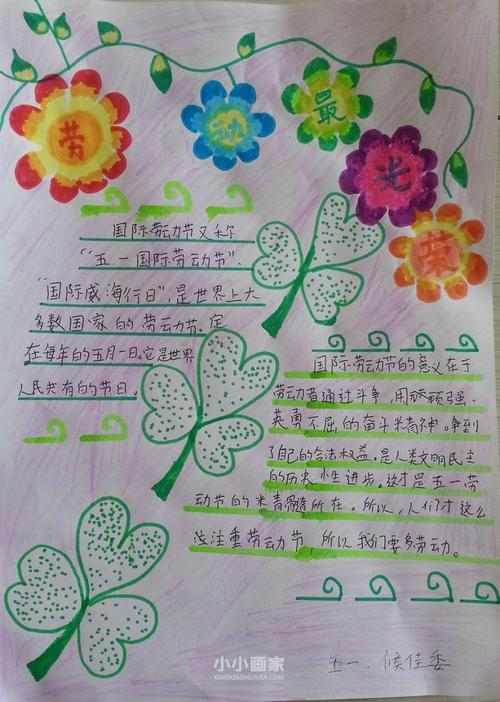 劳动最光荣
国际劳动节又称
“五一国际劳动节”、
“国际威海行日”,是世界上大
多数国家的劳动节。定
在每年的五月一日。它是世界
人民共有的节日。
国际劳动节的意义在于
劳动者通过斗争,用顽顽强、
英勇不屈的奋斗米青神。争到
了自己的合法权益。是人类文明民主
的历史小生进步。这才是五一劳
动节的米青髓所在。所以,人们才这么
注重劳动节,所以我们要多劳动。
五一.侯佳
小小画家
XIAOXIAOHUAJIA.COM